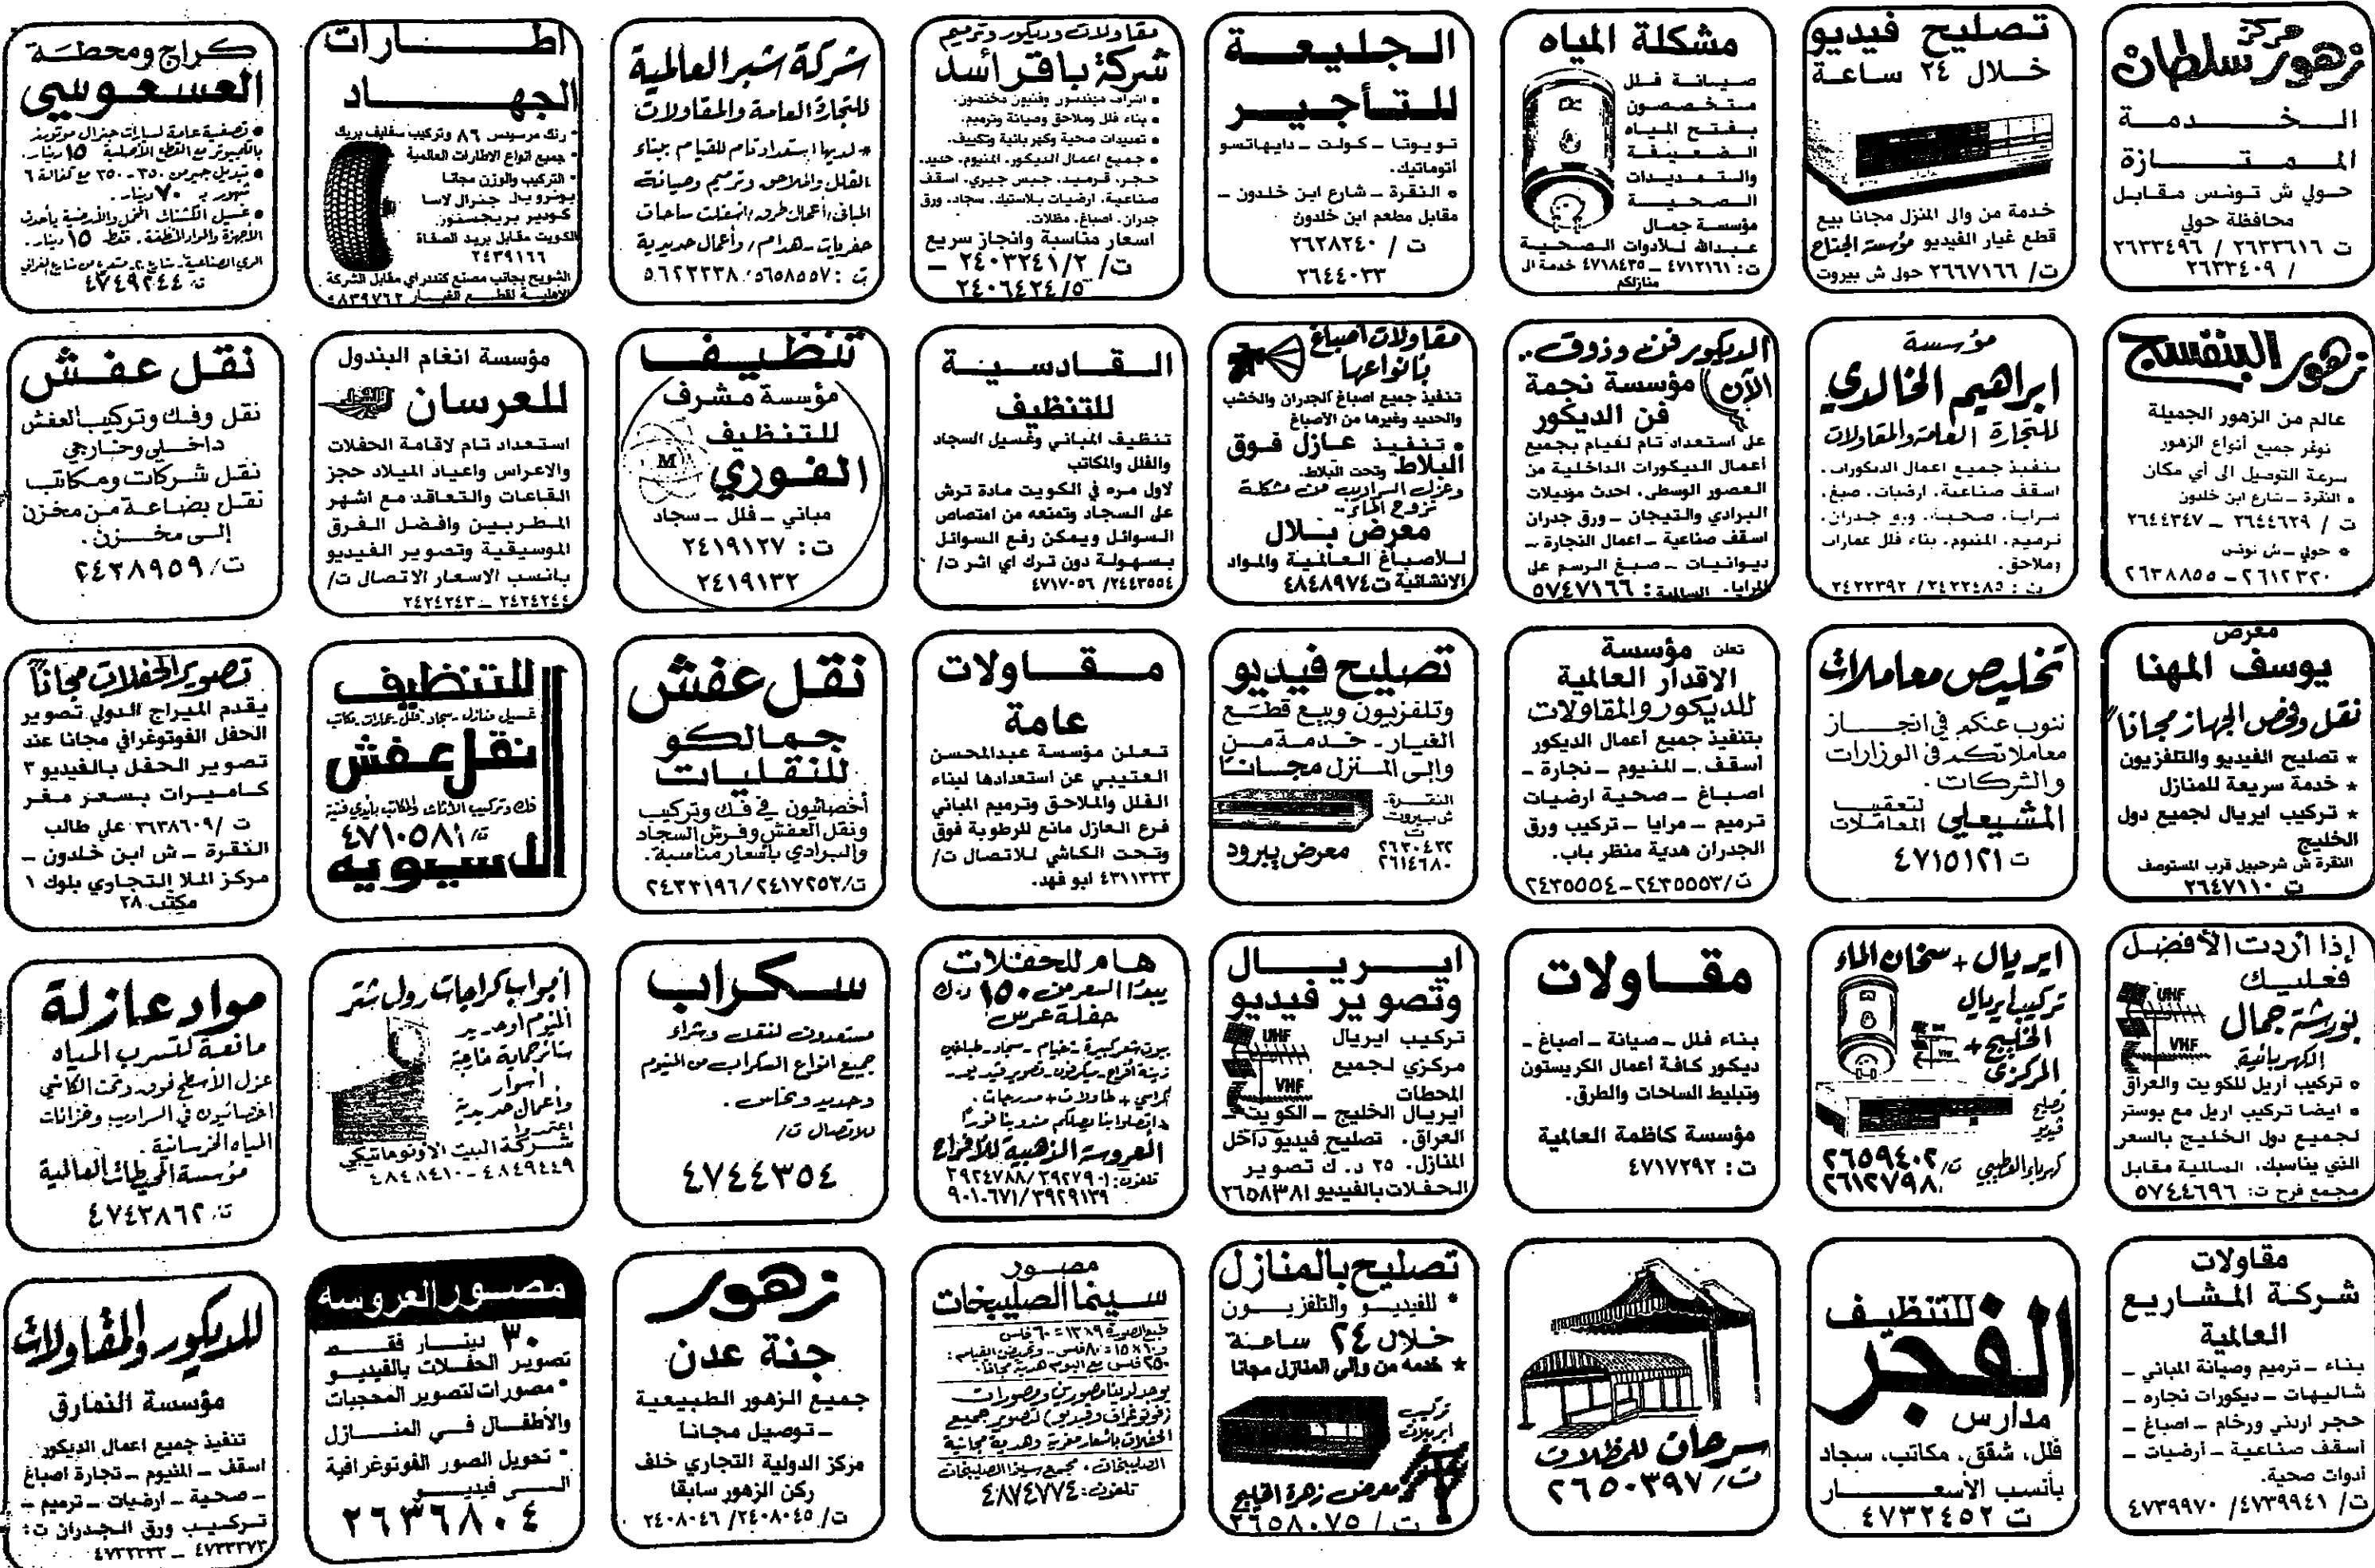 مركز
زهور سلطان
الخدمة
الممتازة
حولي ش تونس مقابل
محافظة حولي
ت ٢٦٣٣٦١٦ / ٢٦٣٣٤٩٦
/ ٢٦٣٣٤٠٩
تصليح فيديو
خلال ٢٤ ساعة
خدمة من والى المنزل مجانا بيع
قطع غيار الفيديو مؤسسة الجناح
ت/ ٢٦٦٧١٦٦ حولى ش بيروت
مشكلة المياه
صيانة فلل
متخصصون
بفتح المياه
الضعيفة
والتمديدات
الصحية
مؤسسة جمال
عبدالله للأدوات الصحية
ت: ٤٧١٢١٦١ – ٤٧١٨٤٣٥ خدمة الى
منازلكم
الجليعة
للتأجير
تويوتا – كولت – دايهاتسو
أتوماتيك.
• النقرة – شارع ابن خلدون –
مقابل مطعم ابن خلدون
ت / ٢٦٢٨٢٤٠
٢٦٤٤٠٣٣
مقاولات وديكور وترميم
شركة باقر أسد
• اشراف مهندسون وفنيون مختصون.
• بناء فلل وملاحق وصيانة وترميم.
• تمديدات صحية وكهربائية وتكييف.
• جميع اعمال الديكور. المنيوم. حديد.
حجر. قرميد. جبس جيري. اسقف
صناعية. ارضيات بلاستيك. سجاد. ورق
جدران. اصباغ. مظلات.
اسعار مناسبة وانجاز سريع
ت/ ٢٤٠٣٢٤١/٢ –
٢٤٠٦٤٢٤/٥
شركة شبر العالمية
للتجارة العامة والمقاولات
* لديها استعداد تام للقيام ببناء
الفلل والملاحق وترميم وصيانة
المباني/ أعمال طرق/ اسفلت ساحات
حفريات – هدام/ وأعمال حديدية
ت: ٥٦٥٨٥٥٧ / ٥٦٢٢٢٣٨
اطارات
الجهاد
• رنك مرسيدس ٨٦ وتركيب سفليف بريك
• جميع انواع الاطارات العالمية
• التركيب والوزن مجانا
يونيرويال جنرال لاسا
كوبير بريجستون
الكويت مقابل بريد الصفاة
٢٤٣٩١٦٦
الشويخ بجانب مصنع كنددراي مقابل الشركة
الاهلية لقطع الغيار ٤٨٣٩٧٦٢
كراج ومحطة
العسعوسي
• تصفية عامة لسيارات جنرال موتورز
بالكمبيوتر مع القطع الأصلية ١٥ دينار.
• تبديل جير من ٢٥٠ – ٣٥٠ مع كفالة ٦
شهور بـ ٧٠ دينار.
• غسيل الكشنات النخل والأرضية بأحدث
الأجهزة والمواد المنظفة. فقط ١٥ دينار.
ت: ٤٧٤٩٢٤٤
زهور البنفسج
عالم من الزهور الجميلة
نوفر جميع أنواع الزهور
سرعة التوصيل الى أي مكان
• النقرة – شارع ابن خلدون
ت / ٢٦٤٤٦٢٩ – ٢٦٤٤٣٤٧
* حولي – ش تونس
٢٦١٢٣٢٠ – ٢٦٣٨٨٥٥
مؤسسة
ابراهيم الخالدي
للتجارة العامة والمقاولات
تنفيذ جميع اعمال الديكورات.
اسقف صناعية. ارضيات. صبغ.
مرايا. صحية. ورق جدران.
ترميم. المنيوم. بناء فلل عمارات
وملاحق.
ت: ٢٤٢٢٤٨٥ / ٢٤٢٢٣٩٢
الديكور فن وذوق..
الآن مؤسسة نجمة
فن الديكور
على استعداد تام للقيام بجميع
أعمال الديكورات الداخلية من
العصور الوسطى. احدث موديلات
البرادي والتيجان – ورق جدران
اسقف صناعية – اعمال النجارة –
ديوانيات – صبغ الرسم على
المرايا. السالمية: ٥٧٤٧١٦٦
مقاولات أصباغ
بأنواعها
تنفيذ جميع اصباغ الجدران والخشب
والحديد وغيرها من الأصباغ
• تنفيذ عازل فوق
البلاط وتحت البلاط.
وعزل السراديب من مشكلة
نزوح الماء..
معرض بلال
للأصباغ العالمية والمواد
الانشائية ت ٤٨٤٨٩٧٤
القادسية
للتنظيف
تنظيف المباني وغسيل السجاد
والفلل والمكاتب
لاول مره في الكويت مادة ترش
على السجاد وتمنعه من امتصاص
السوائل ويمكن رفع السوائل
بسهولة دون ترك اي اثر ت/
٢٤٤٣٥٥٤/ ٤٧١٧٠٥٦
تنظيف
مؤسسة مشرف
للتنظيف
الفوري
M
مباني – فلل – سجاد
ت: ٢٤١٩١٢٧
٢٤١٩١٣٢
مؤسسة انغام البندول
للعرسان
استعداد تام لاقامة الحفلات
والاعراس واعياد الميلاد حجز
القاعات والتعاقد مع اشهر
المطربين وافضل الفرق
الموسيقية وتصوير الفيديو
بانسب الاسعار الاتصال ت/
٢٤٢٤٢٤٤ – ٢٤٢٤٢٤٣
نقل عفش
نقل وفك وتركيب العفش
داخلي وخارجي
نقل شركات ومكاتب
نقل بضاعة من مخزن
إلى مخزن.
ت/ ٢٤٣٨٩٥٩
معرض
يوسف المهنا
نقل وفحص الجهاز مجاناً
* تصليح الفيديو والتلفزيون
* خدمة سريعة للمنازل
* تركيب ايريال لجميع دول
الخليج
النقرة ش شرحبيل قرب المستوصف
ت ٢٦٤٧١١٠
تخليص معاملات
ننوب عنكم في انجاز
معاملاتكم في الوزارات
والشركات.
المشيعلي لتعقيب المعاملات
ت ٤٧١٥١٢١
تعلن مؤسسة
الاقدار العالمية
للديكور والمقاولات
بتنفيذ جميع أعمال الديكور
أسقف – المنيوم – نجارة –
اصباغ – صحية ارضيات
ترميم – مرايا – تركيب ورق
الجدران هدية منظر باب.
ت/ ٢٤٣٥٥٥٣–٢٤٣٥٥٥٤
تصليح فيديو
وتلفزيون وبيع قطع
الغيار – خدمة من
والى المنزل مجاناً
النقرة –
ش بيروت
ت
٢٦٣٠٤٣٢
٢٦١٤٦٨٠
معرض يبرود
مقاولات
عامة
تعلن مؤسسة عبدالمحسن
العتيبي عن استعدادها لبناء
الفلل والملاحق وترميم المباني
فرع العازل مانع للرطوبة فوق
وتحت الكاشي للاتصال ت/
٤٣١١٣٣٣ ابو فهد.
نقل عفش
جمالكو
للنقليات
أخصائيون في فك وتركيب
ونقل العفش وفرش السجاد
والبرادي بأسعار مناسبة.
ت/٢٤١٧٢٥٣/ ٢٤٣٣١٩٦
للتنظيف
غسيل منازل – سجاد – فلل – عمارات – مكاتب
نقل عفش
فك وتركيب الأثاث والمكاتب بأيدي فنية
ت/ ٤٧١٠٥٨١
الدسبويه
تصوير الحفلات مجاناً
يقدم الميراج الدولي تصوير
الحفل الفوتوغرافي مجانا عند
تصوير الحفل بالفيديو ٣
كاميرات بسعر مغر
ت /٣٦٣٨٦٠٩ علي طالب
النقرة – ش ابن خلدون –
مركز الملا التجاري بلوك ١
مكتب ٢٨
إذا أردت الأفضل
فعليك
بورشة جمال
الكهربائية
UHF
VHF
• تركيب أريل للكويت والعراق
• ايضا تركيب اريل مع بوستر
لجميع دول الخليج بالسعر
الذي يناسبك. السالمية مقابل
مجمع فرح ت: ٥٧٤٤٦٩٦
ايريال + سخان الماء
تركيب ايريال
الخليج +
المركزي
VHF
تصليح
فيديو
كهرباء القطيبي ت/ ٢٦٥٩٤٠٢
٢٦١٢٧٩٨
مقاولات
بناء فلل – صيانة – اصباغ –
ديكور كافة أعمال الكريستون
وتبليط الساحات والطرق.
مؤسسة كاظمة العالمية
ت: ٤٧١٧٢٩٢
ايريال
وتصوير فيديو
تركيب ايريال
مركزي لجميع
المحطات
UHF
VHF
ايريال الخليج – الكويت –
العراق. تصليح فيديو داخل
المنازل. ٢٥ د.ك تصوير
الحفلات بالفيديو ٢٦٥٨٣٨١
هام للحفلات
يبدأ السعر من ١٥٠ د.ك
حفلة عرس
بيوت شعر كبيرة – خيام – سجاد – طباخين
زينة افراح – ميكرفون – تصوير فيديو –
كراسي + طاولات + مدرجات.
• اتصلوا بنا يصلكم مندوبنا فوراً
العروسة الذهبية للأفراح
تلفون: ٣٩٢٧٩٠١/ ٣٩٢٤٧٨٨
٣٩٢٩١٣٩/ ٩٠١٠٦٧١
سكراب
مستعدون لنقل وشراء
جميع انواع السكراب من المنيوم
وحديد ونحاس.
للاتصال ت/
٤٧٤٤٣٥٤
أبواب كراجات رول شتر
المنيوم أو حديد
ستائر حماية خارجية
. أسوار
وأعمال حديدية
اعتمدوا
شركة البيت الأوتوماتيكي
٤٨٤٩٤٤٩ – ٤٨٤٨٤١٠
مواد عازلة
مانعة لتسرب المياه
عزل الأسطح فوق وتحت الكاشي
اخصائيون في السراديب وخزانات
المياه الخرسانية.
مؤسسة المحيطات العالمية
ت: ٤٧٤٣٨٦٢
مقاولات
شركة المشاريع
العالمية
بناء – ترميم وصيانة المباني –
شاليهات – ديكورات نجاره –
حجر اردني ورخام – اصباغ –
أسقف صناعية – أرضيات –
أدوات صحية.
ت/ ٤٧٣٩٩٤١/ ٤٧٣٩٩٧٠
للتنظيف
الفجر
مدارس
فلل، شقق، مكاتب، سجاد
بأنسب الأسعار
ت ٤٧٣٢٤٥٢
سرحان للمظلات
ت/ ٢٦٥٠٣٩٧
تصليح بالمنازل
* للفيديو والتلفزيون
خلال ٢٤ ساعة
* خدمه من والى المنازل مجانا
تركيب
ايريلات
معرض زهرة الخليج
ت / ٢٦٥٨٠٧٥
مصور
سينما الصليبخات
طبع الصورة ٩×١٣ = ٦٠ فلس
و ١٠×١٥ = ٨٠ فلس – وتحميض الفيلم:
٢٥٠ فلس مع ألبوم هدية مجاناً.
يوجد لدينا مصورين ومصورات
(فوتوغراف وفيديو) لتصوير جميع
الحفلات بأسعار مغرية وهدية مجانية
الصليبخات، مجمع سينما الصليبخات
تلفون: ٤٨٧٤٧٧٤
زهور
جنة عدن
جميع الزهور الطبيعية
– توصيل مجانا
مركز الدولية التجاري خلف
ركن الزهور سابقا
ت/ ٢٤٠٨٠٤٥/ ٢٤٠٨٠٤٦
مصور العروسه
٣٠ دينار فقط
تصوير الحفلات بالفيديو
• مصورات لتصوير المحجبات
والأطفال في المنازل
• تحويل الصور الفوتوغرافية
الى فيديو
٢٦٣٦٨٠٤
للديكور والمقاولات
مؤسسة النمارق
تنفيذ جميع اعمال الديكور
اسقف – المنيوم – نجارة اصباغ
– صحية – ارضيات – ترميم –
تركيب ورق الجدران ت:
٤٧٣٣٣٧٣ – ٤٧٣٣٣٣٣